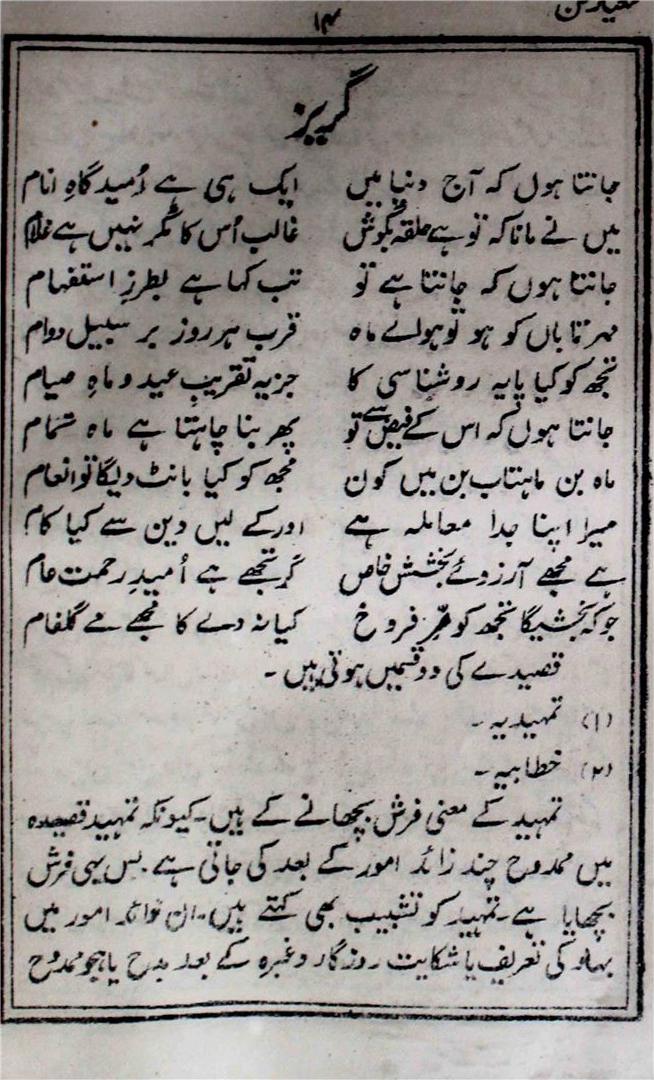 ۱۴
گریز
جانتا ہوں کہ آج دنیا میں ایک ہی ہے اُمید گاہِ انام
میں نے مانا کہ تو ہے حلقہ بگوش غالب اُس کا مگر نہیں ہے غلام
جانتا ہوں کہ جانتا ہے تو تب کہا ہے بطرزِ استفہام
مہر تاباں کو ہو تو ہو اے ماہ قرب ہر روز بر سبیل دوام
تجھ کو کیا پایہ روشناسی کا جز بہ تقریبِ عید و ماہِ صیام
جانتا ہوں کہ اس کے فیض سے تو پھر بنا چاہتا ہے ماہ تمام
ماہ بن ماہتاب بن میں کون مجھ کو کیا بانٹ دیگا تو انعام
میرا اپنا جدا معاملہ ہے اور کے لیں دین سے کیا کام
ہے مجھے آرزوئے بخشش خاص گر تجھے ہے اُمیدِ رحمت عام
جو کہ بخشیگا تجھ کو فر فروغ کیا نہ دے گا مجھے مے گلفام
قصیدے کی دو قسمیں ہوتی ہیں ۔
(۱) تمہیدیہ ۔
(۲) خطابیہ ۔
تمہید کے معنی فرش بچھانے کے ہیں۔ کیونکہ تمہید قصیدہ
میں ممدوح چند زائد امور کے بعد کی جاتی ہے۔ بس یہی فرش
بچھایا ہے ۔ تمہید کو تشبیب بھی کہتے ہیں۔ ان زائد امور میں
بہار کی تعریف یا شکایت روزگار وغیرہ کے بعد مدح یا ہجو ممدوح